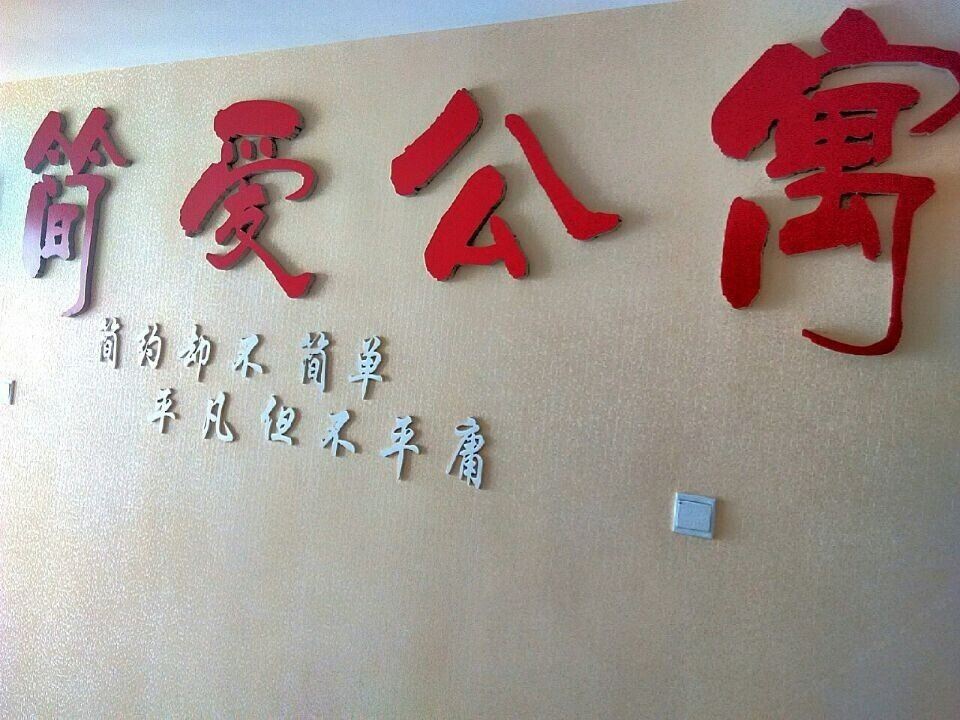 简爱公寓
简约却不简单
平凡但不平庸